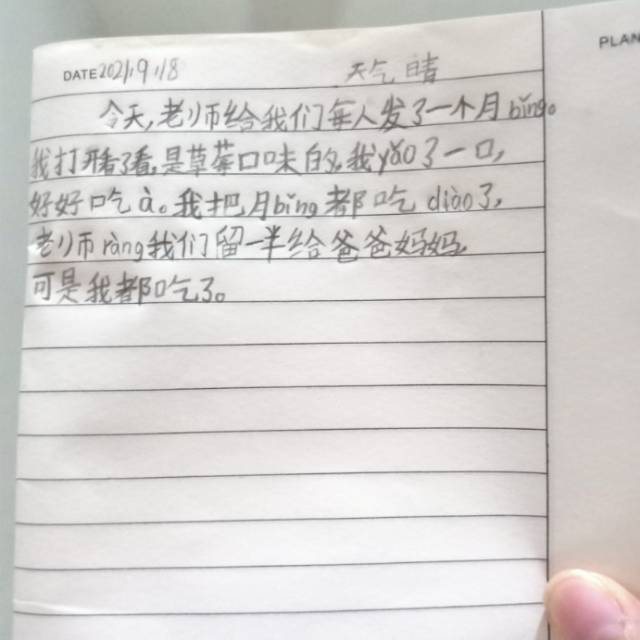 DATE 2021.9.18 天气晴
PLAN
今天,老师给我们每人发了一个月bǐng。
我打开看了看,是草莓口味的,我yǎo了一口,
好好吃à。我把月bǐng都吃diào了,
老师ràng我们留一半给爸爸妈妈,
可是我都吃了。